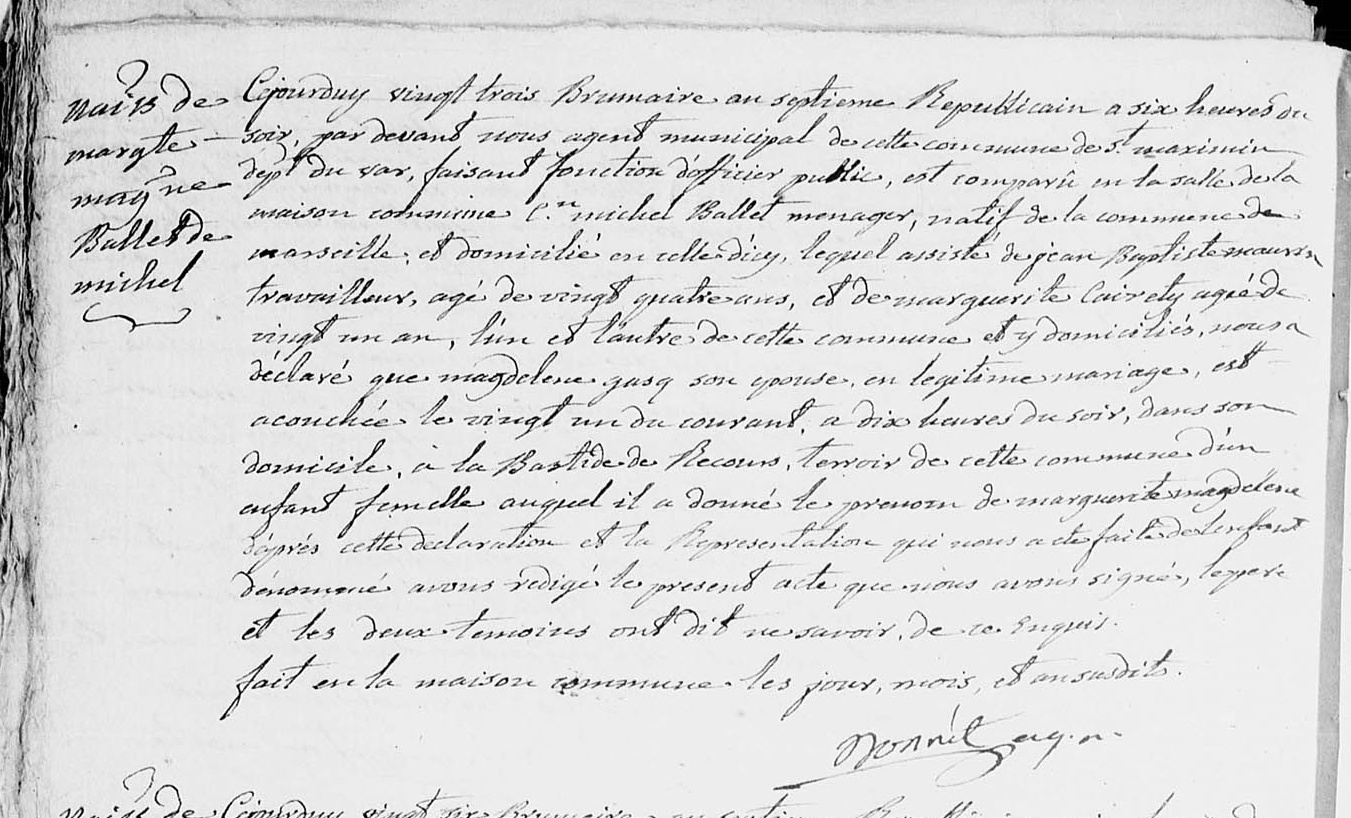 nais.ce de
margte
magne
Ballet de
michel
Cejourduy vingt trois Brumaire an septieme Republicain a six heures du
soir, par devant nous agent municipal de cette commune de St. maximin
dept. du var, faisant fonction d'officier public, est comparû en la salle de la
maison commune C.en michel Ballet menager, natif de la commune de
marseille, et domicilié en celle d'icy, lequel assisté de jean Baptiste maurin
travailleur, agé de vingt quatre ans, et de marguerite Cairety agée de
vingt un an, l'un et l'autre de cette commune et y domiciliés, nous a
déclaré que magdelene gasq son epouse, en legitime mariage, est
acouchée le vingt un du courant, a dix heures du soir, dans son
domicile, a la Bastide de Recours, terroir de cette commune d'un
enfant femelle auquel il a donné le prenom de marguerite magdelene
d'aprés cette declaration et la Representation qui nous a ete faite de l'enfant
dénommé avons redigé le present acte que nous avons signé, le pere
et les deux temoins ont dit ne savoir, de ce Enquis.
fait en la maison commune les jour, mois, et an susdits.
ag.n.
nais.ce de
Cejourduy vingt six Brumaire an septieme